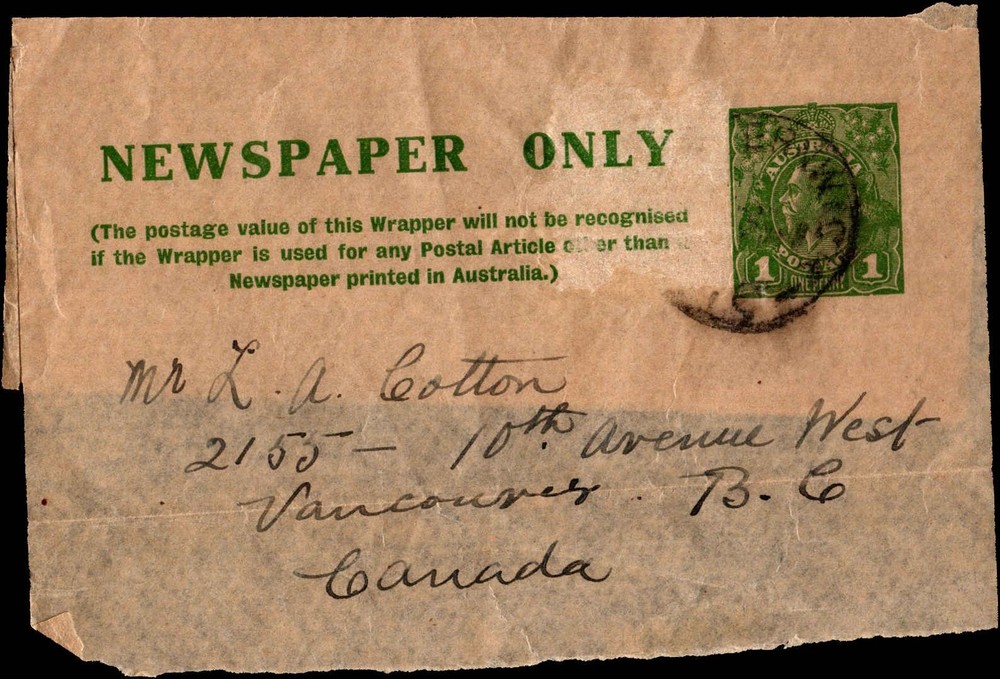 NEWSPAPER ONLY
(The postage value of this Wrapper will not be recognised
if the Wrapper is used for any Postal Article other than a
Newspaper printed in Australia.)
AUSTRALIA
POSTAGE
1 ONE PENNY 1
Mr L. A. Cotton
2155 — 10th Avenue West
Vancouver. B. C
Canada